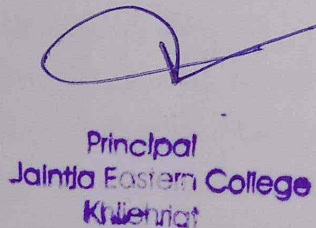 Principal
Jaintia Eastern College
Khliehriat